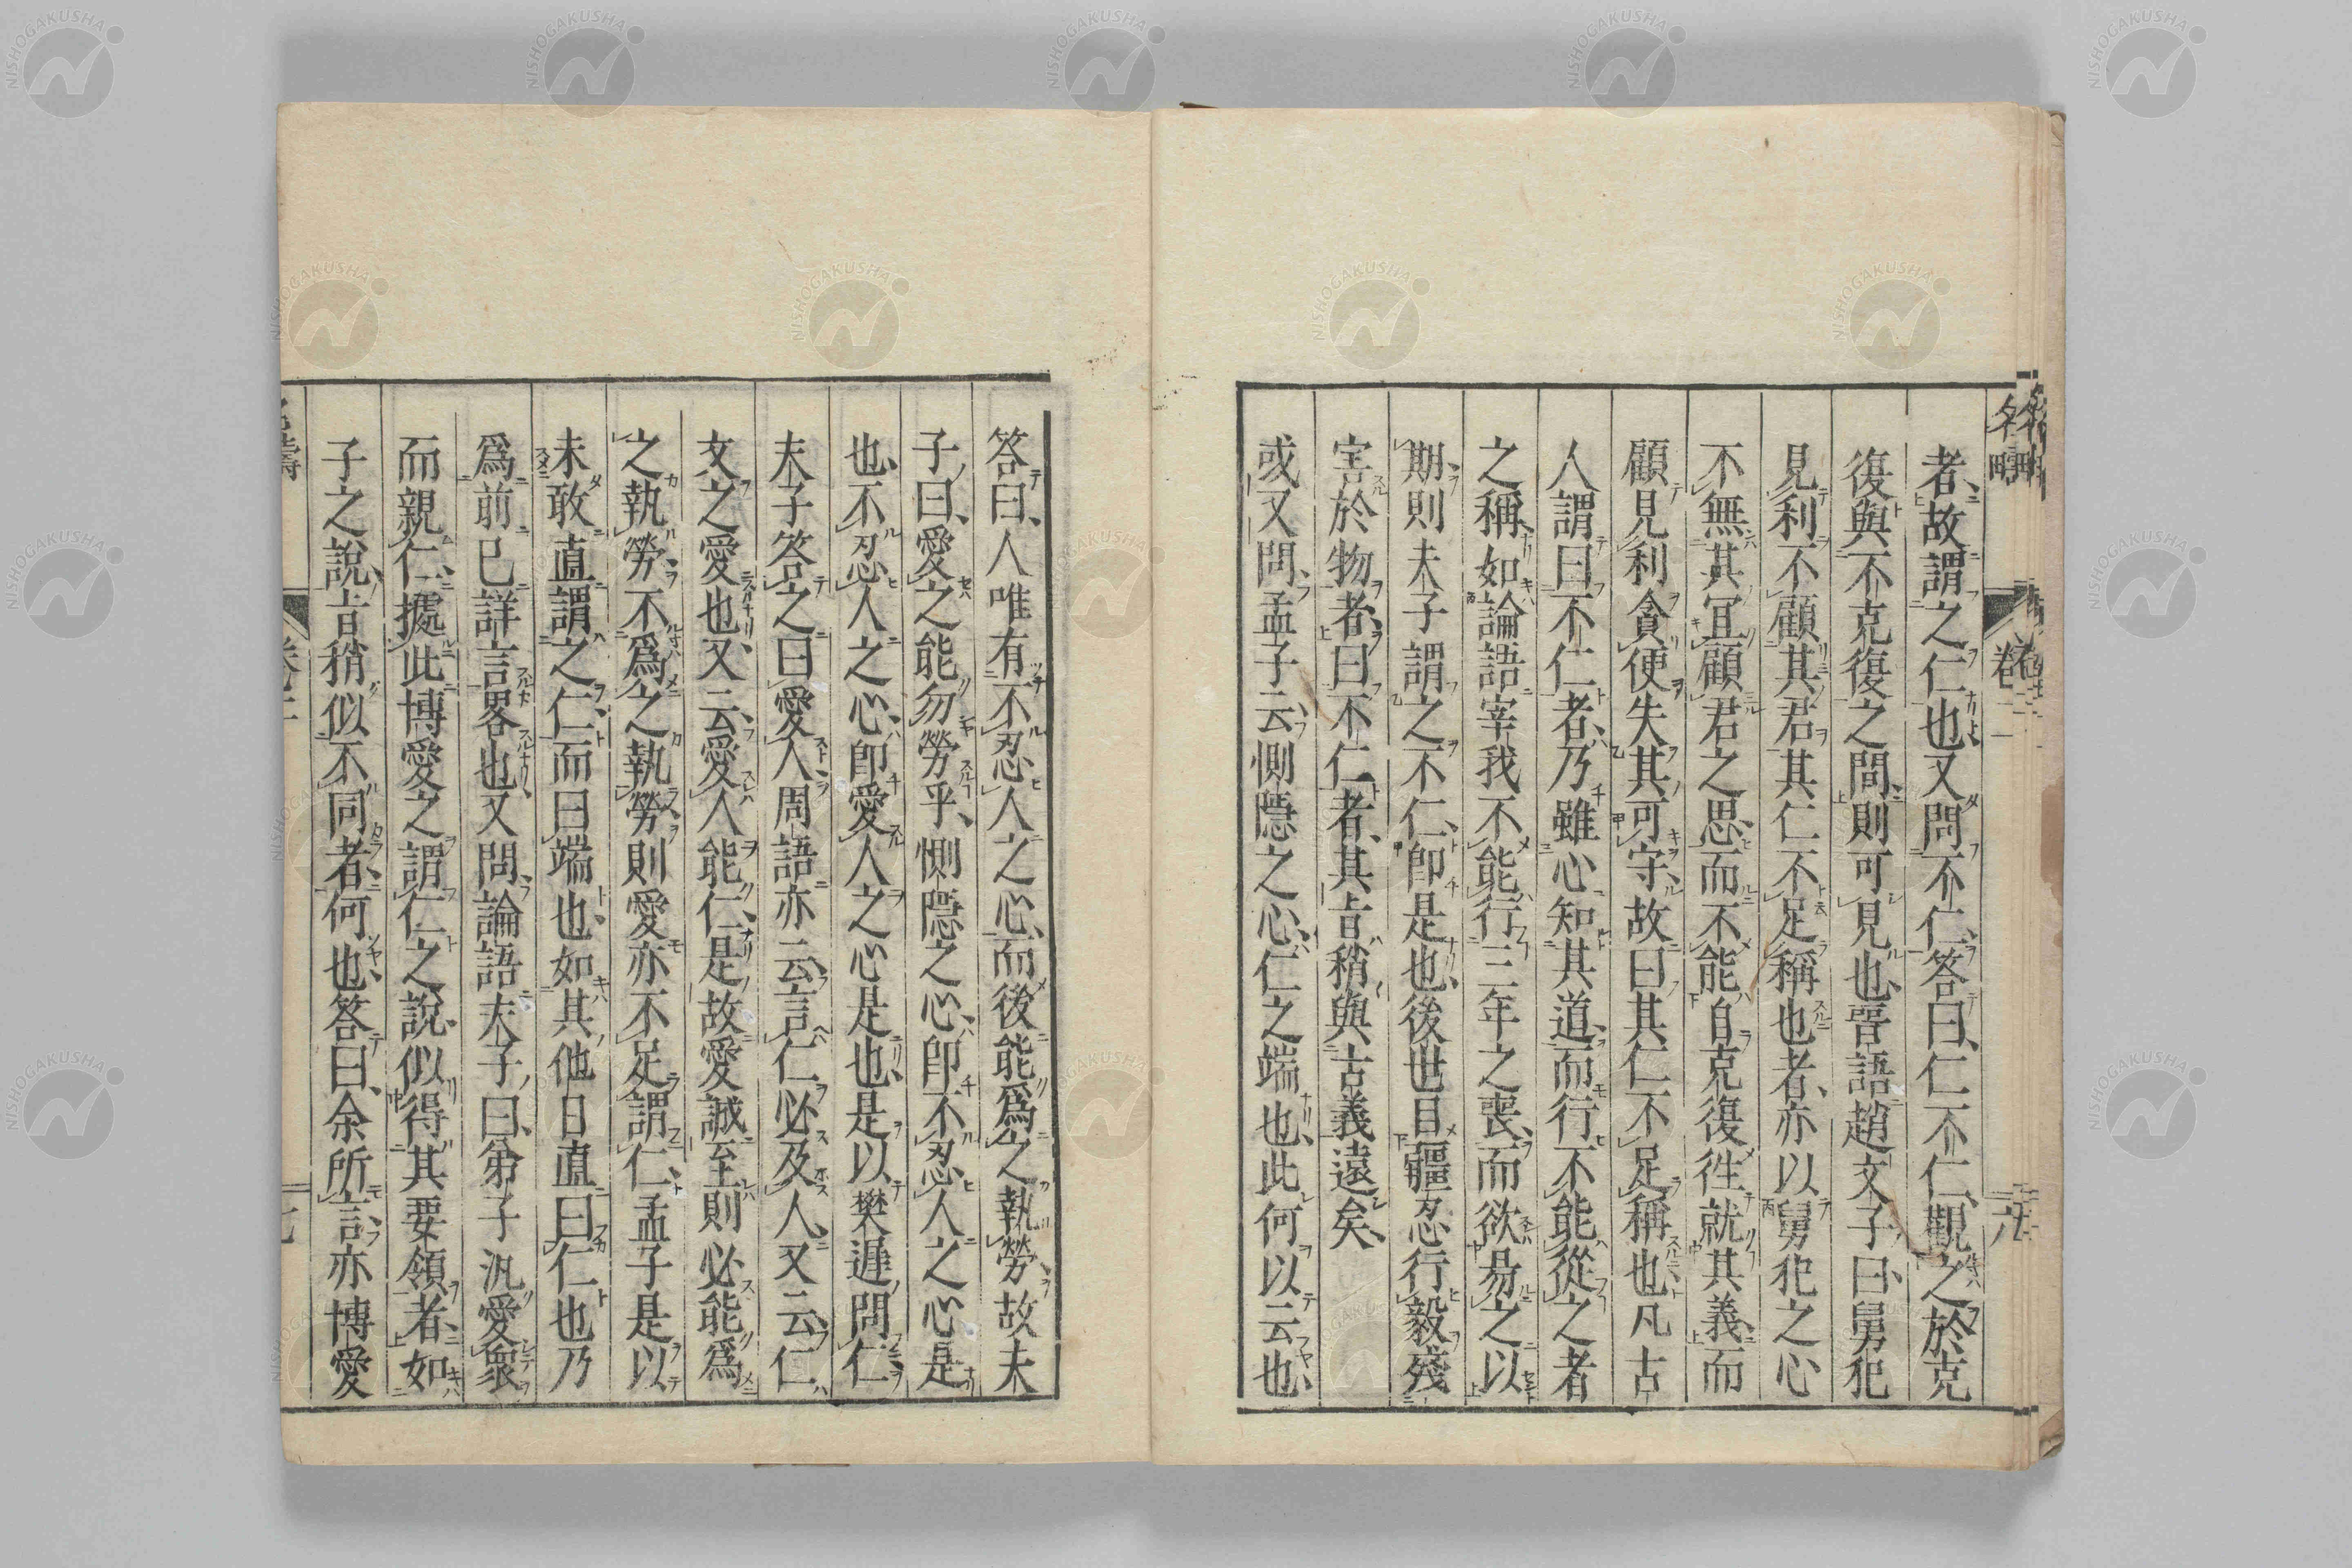 者、故謂之仁也、又問不仁、答曰、仁不仁、觀之於克
復與不克復之間、則可見也、晋語趙文子曰、舅犯
見利不顧其君其仁不足稱也者、亦以舅犯之心
不無其冝顧君之思、而不能自克復徃就其義、而
顧見利貪便失其可守、故曰其仁不足稱也凡古
人謂曰不仁者、乃雖心知其道、而行不能從之者
之稱、如論語宰我不能行三年之喪、而欲昜之以
期、則夫子謂之不仁、卽是也、後世目彊忍行毅殘
害於物者、曰不仁者、其㫖稍與古義遠矣、
或又問、孟子云、惻隱之心、仁之端也、此何以云也、
答曰、人唯有不忍人之心、而後能爲之執勞、故夫
子曰、愛之能勿勞乎、惻隱之心、卽不忍人之心是
也、不忍人之心、卽愛人之心是也、是以樊遲問仁、
夫子答之曰愛人、周語亦云、言仁必及人、又云、仁
文之愛也、又云、愛人能仁、是故愛誠至則必能爲
之執勞、不爲之執勞、則愛亦不足謂仁、孟子是以
未敢直謂之仁、而曰端也、如其他日直曰仁也乃
爲前已詳言畧也、又問、論語夫子曰、弟子汎愛衆
而親仁、據此博愛之謂仁之說、似得其要領者、如
子之說、㫖稍似不同者、何也、答曰、余所言、亦博愛